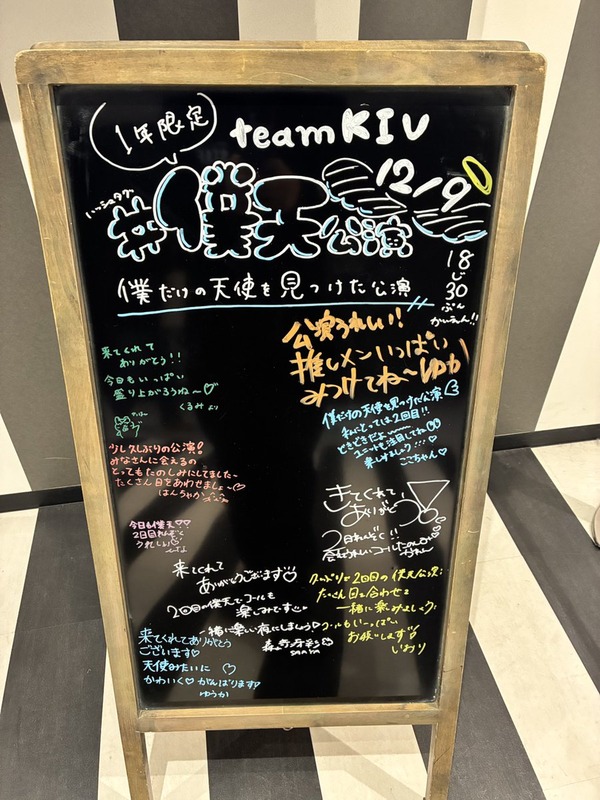 1年限定
team KIV
12/9
#僕天公演
18じ30ぷん
かいえん!!
僕だけの天使を見つけた公演
公演うれしい!!
推しメンいっぱい
みつけてね~ゆか
来てくれて
ありがとう!!
今日もいっぱい
盛り上がろうね~♡
くるみより
僕だけの天使を見つけた公演
私にとっては2回目!!
どきどきだよ
ユニットも注目してね
楽しみましょう
ここちゃん♡
少し久しぶりの公演!
みなさんに会えるの
とってもたのしみにしてました~
たくさん目をあわせましょ~♡
きてくれて
ありがとう!
2日れんぞく!!
今日も僕天♡♡
2日目れんぞく
うれしい
来てくれて
ありがとうございます♡
2回目の僕天でコールも
楽しみです
一緒に楽しい夜にしましょう
2回目の僕天公演
たくさん目を合わせて
一緒に楽しみましょ
コールもいーっぱい
お願いします♡
いおり
来てくれてありがとう
ございます♡
天使みたいに
かわいく♡がんばります♡
ゆうか